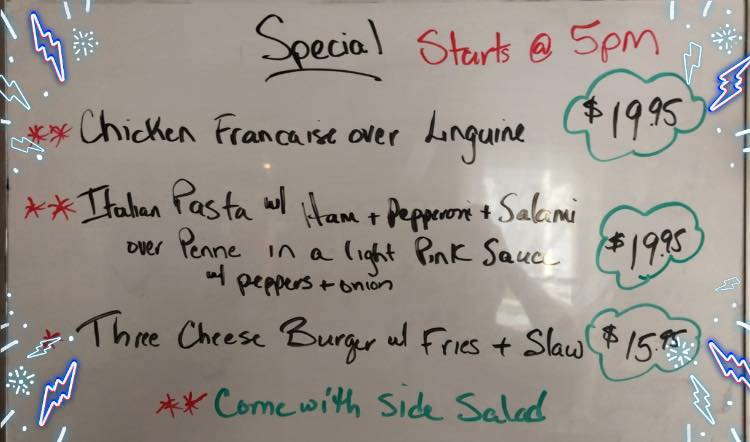 Special Starts @ 5pm
** Chicken Francaise over Linguine $19.95
** Italian Pasta w/ Ham + Pepperoni + Salami
over Penne in a light Pink Sauce $19.95
w/ peppers + onion
* Three Cheese Burger w/ Fries + Slaw $15.95
** Come with Side Salad